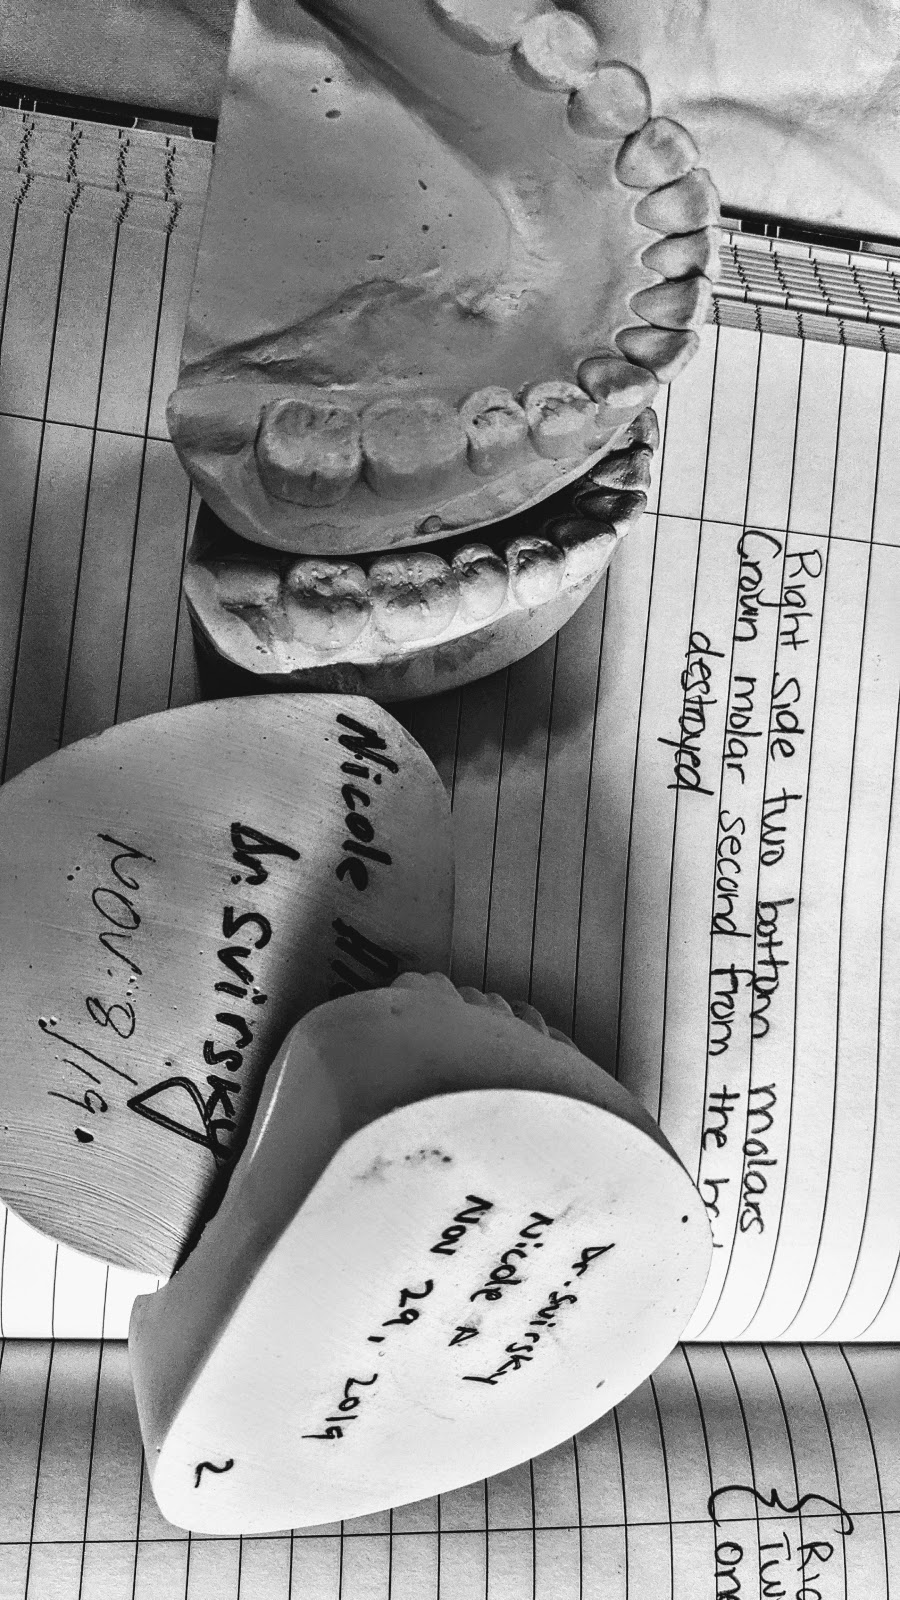 Right side two bottom molars
Crown molar second from the
destroyed
Nicole
Dr. Svirsky
Nov. 8/19.
Dr. Svirsky
Nicole A
Nov 29, 2019
2